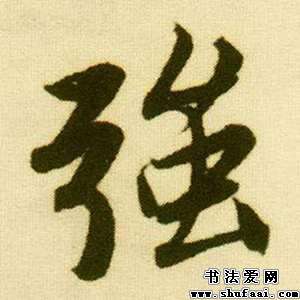 強
书法爱网
www.shufaai.com